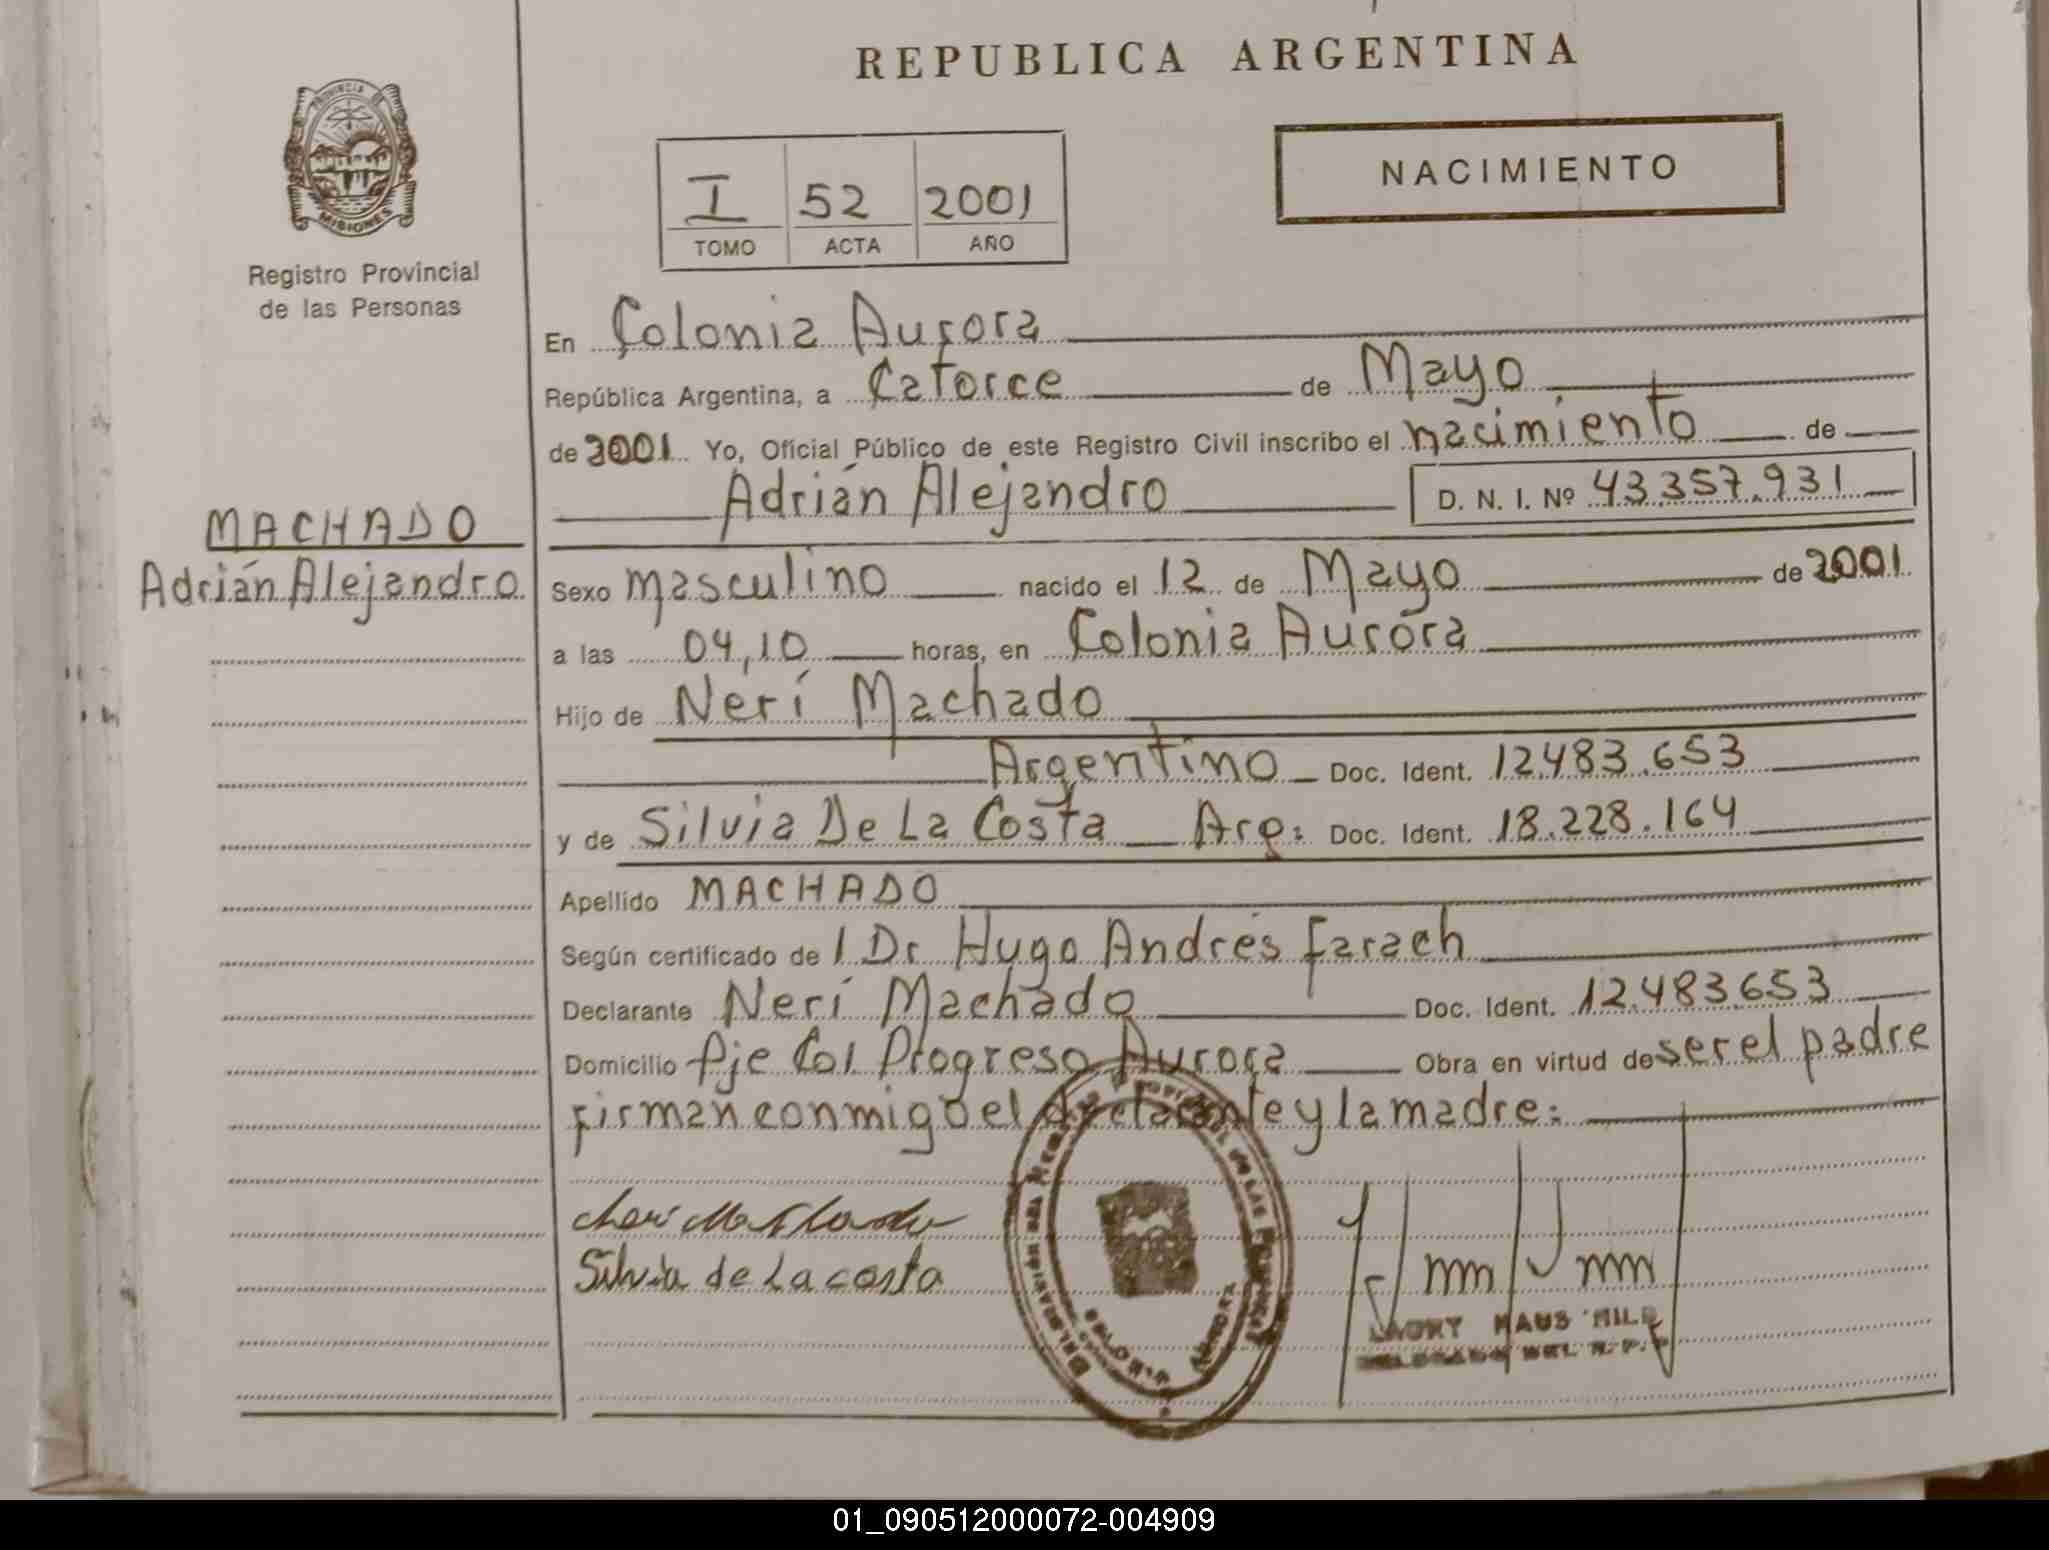 REPUBLICA ARGENTINA
PROVINCIA DE
MISIONES
Registro Provincial
de las Personas
I 52 2001
TOMO ACTA AÑO
NACIMIENTO
En Colonia Aurora
República Argentina, a Catorce de Mayo
de 2001 Yo, Oficial Público de este Registro Civil inscribo el nacimiento de
Adrián Alejandro D. N. I. Nº 43.357.931
MACHADO
Adrián Alejandro
Sexo masculino nacido el 12 de Mayo de 2001
a las 04,10 horas, en Colonia Aurora
Hijo de Neri Machado
Argentino Doc. Ident. 12.483.653
y de Silvia De La Costa Arg: Doc. Ident. 18.228.164
Apellido MACHADO
Según certificado de l Dr Hugo Andrés Farach
Declarante Neri Machado Doc. Ident. 12.483.653
Domicilio Pje Col Progreso Aurora Obra en virtud de ser el padre
firman conmigo el declarante y la madre:
Silvia de La costa
01_090512000072-004909